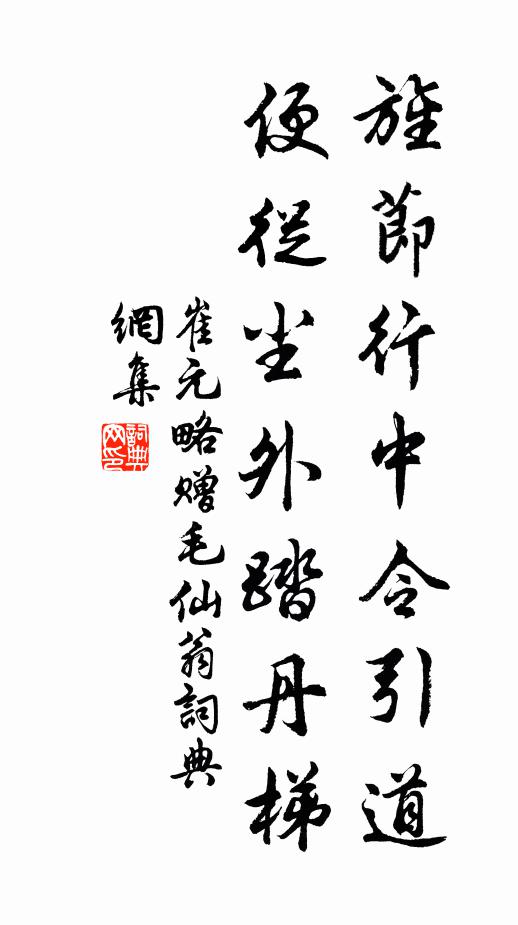 旌節行中令引道
便從坐外踏丹梯
崔元略贈毛仙翁詞典
網集
詞典網印